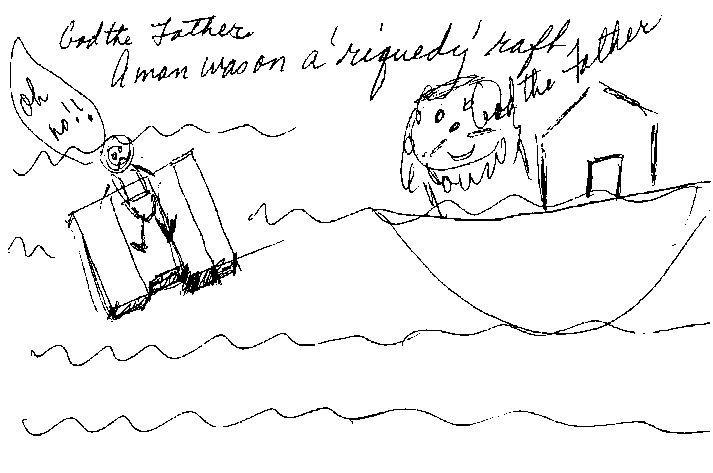 God the Father.
A man was on a 'riquedy' raft
God the Father
oh
no!!